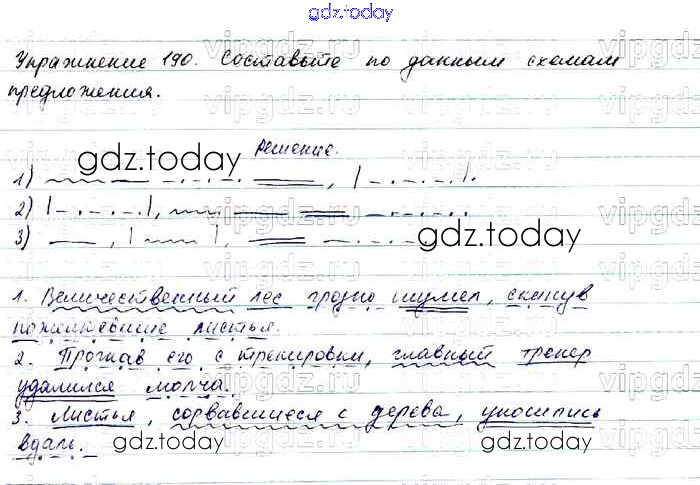 gdz.today
Упражнение 190. Составьте по данным схемам
предложения.
Решение.
gdz.today
1)
2)
3)
gdz.today
1. Величественный лес грозно шумел, скинув
пожелтевшие листья.
2. Прогнав его с тренировки, главный тренер
удалился молча.
3. Листья, сорвавшиеся с дерева, уносились
вдаль.
gdz.today gdz.today